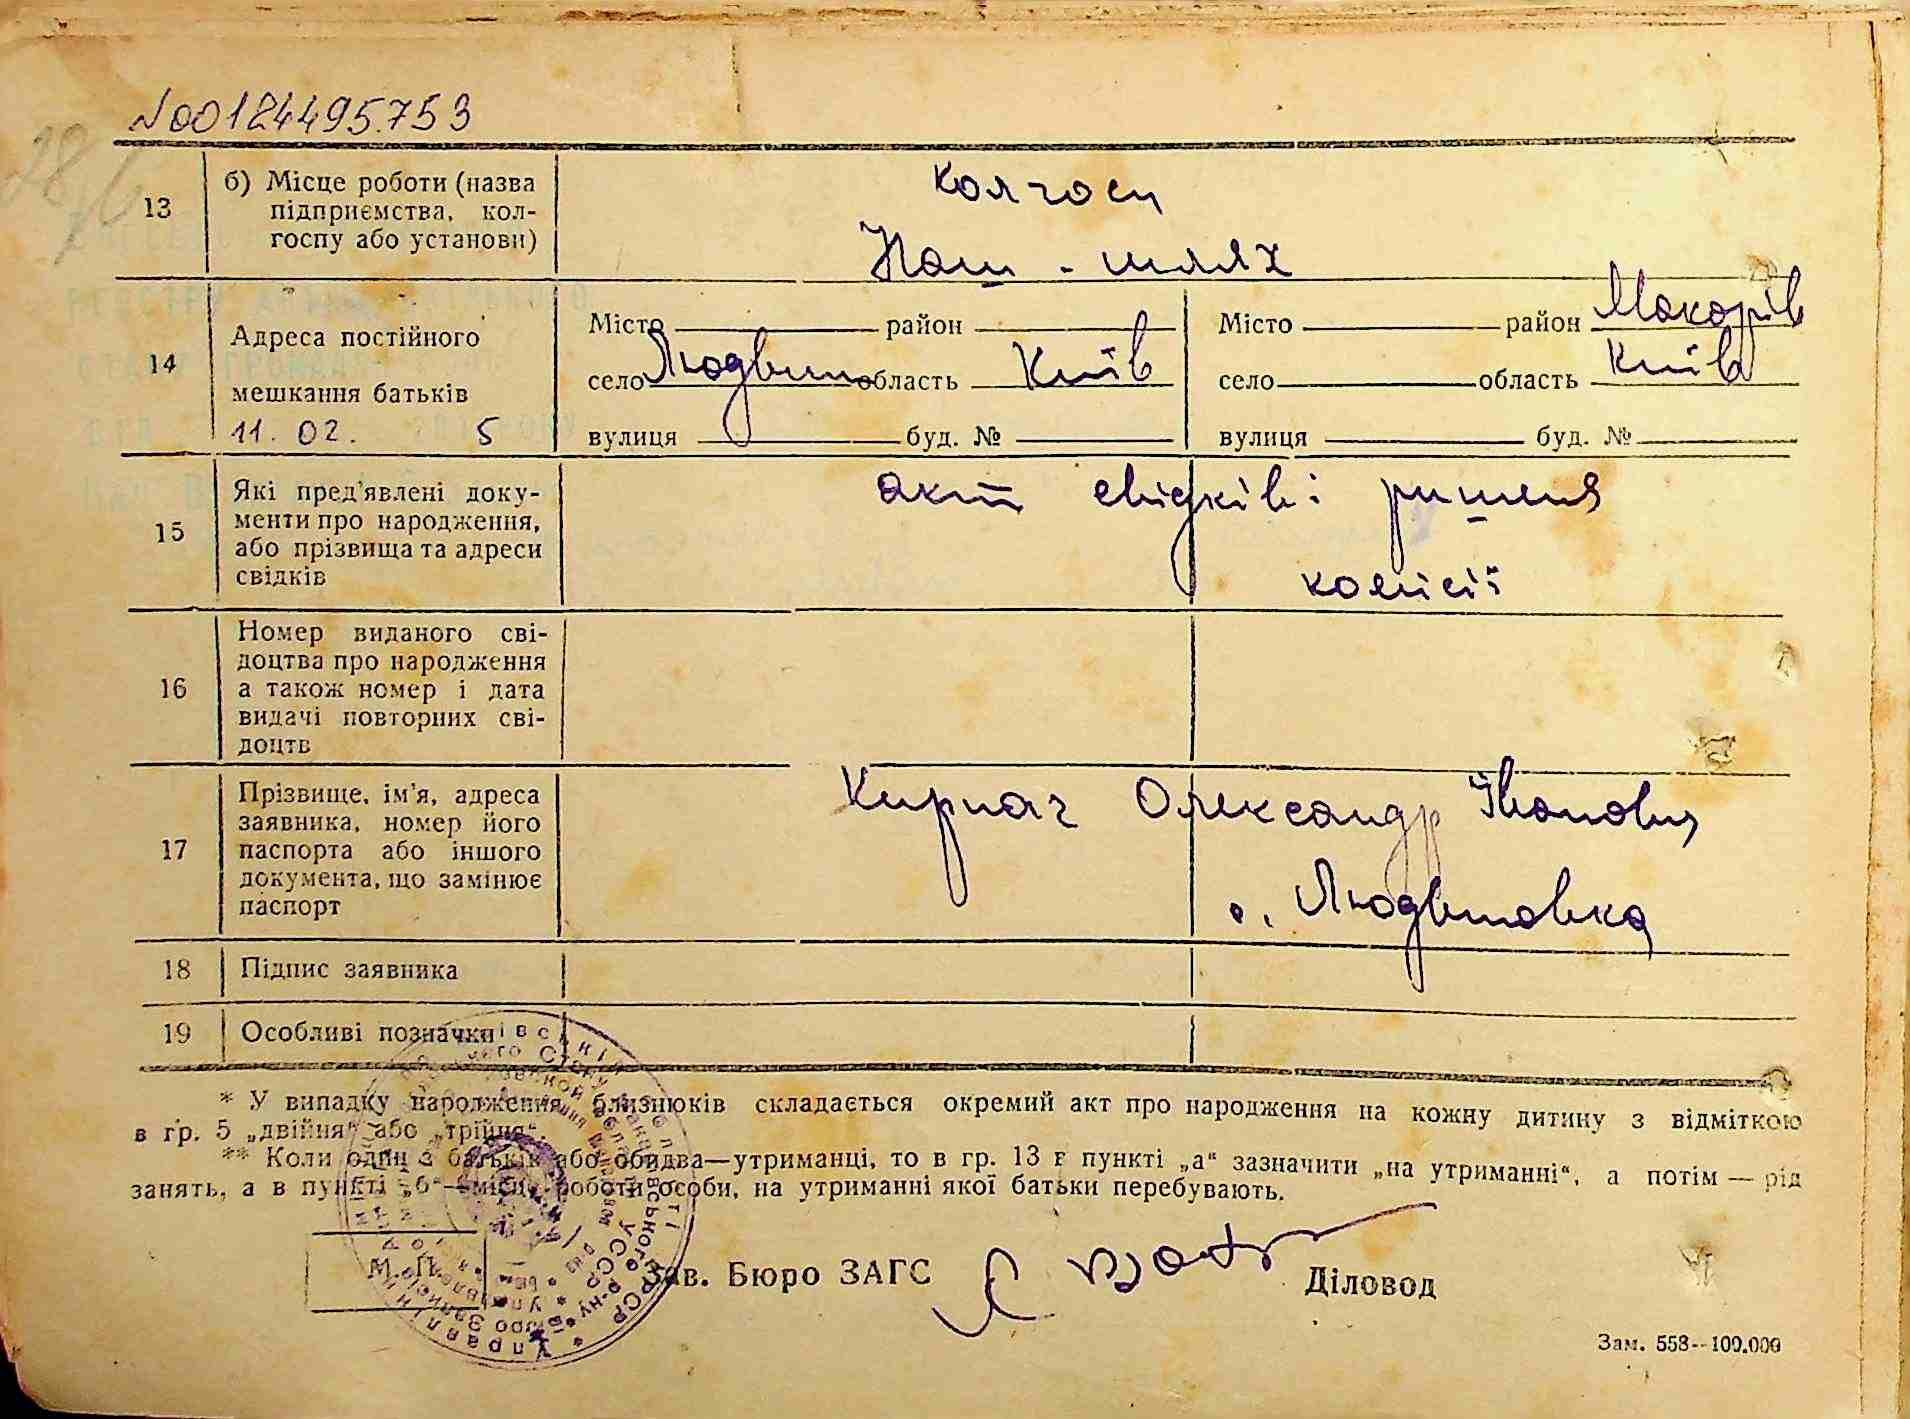 №00124495753
13
б) Місце роботи (назва
підприємства, кол-
госпу або установи)
колгосп
Наш - шлях
14
Адреса постійного
мешкання батьків
11. 02. 5
Місто район
село Людвин область Київ
вулиця буд. №
Місто район Макарів
село область Київ
вулиця буд. №
15
Які пред'явлені доку-
менти про народження,
або прізвища та адреси
свідків
акт свідків і ришеня
комісії
16
Номер виданого сві-
доцтва про народження
а також номер і дата
видачі повторних сві-
доцтв
17
Прізвище, ім'я, адреса
заявника, номер його
паспорта або іншого
документа, що замінює
паспорт
Кирпач Олександр Іванович
с. Людвиновка
18
Підпис заявника
19
Особливі позначки
* У випадку народження близнюків складається окремий акт про народження на кожну дитину з відміткою
в гр. 5 „двійня“ або „трійня“.
** Коли один з батьків або обидва—утриманці, то в гр. 13 в пункті „а“ зазначити „на утриманні“, а потім — рід
занять, а в пункті „б“—місце роботи особи, на утриманні якої батьки перебувають.
М. П.
Зав. Бюро ЗАГС
Діловод
Зам. 558--100.000